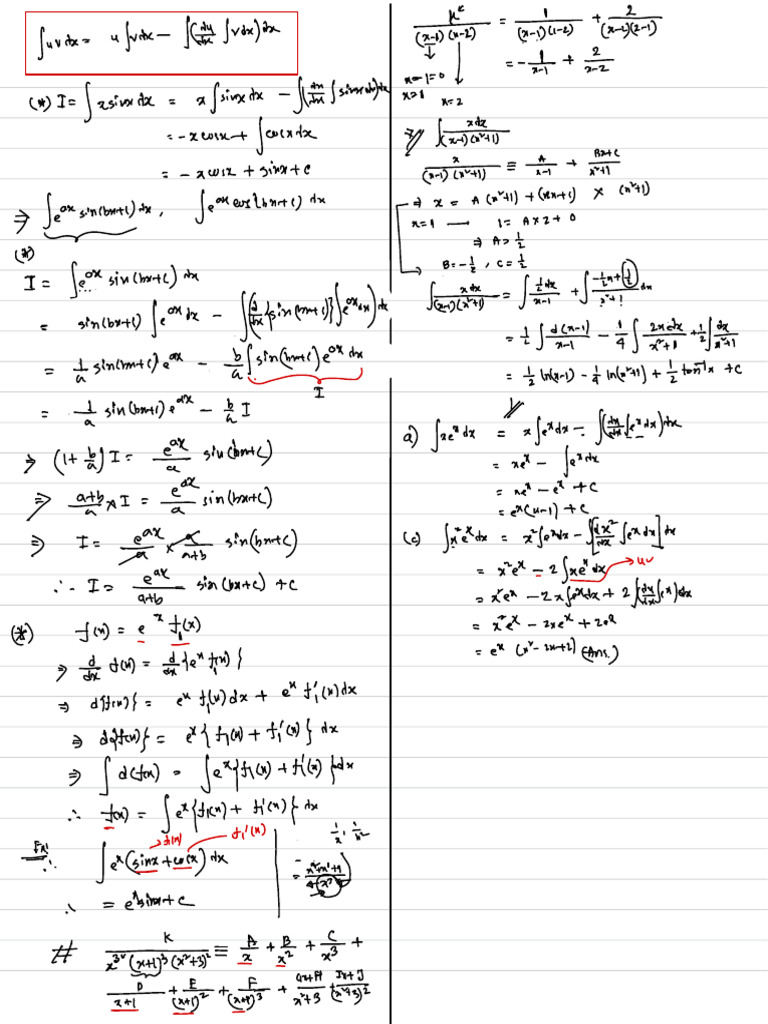 ∫uv dx = u∫v dx − ∫(du/dx ∫v dx) dx
(*) I = ∫x sinx dx = x∫sinx dx − ∫(dx/dx ∫sinx dx) dx
= −x cosx + ∫cosx dx
= −x cosx + sinx + c
⇒ ∫e^ax sin(bx+c) dx, ∫e^ax cos(bx+c) dx
(*)
I = ∫e^ax sin(bx+c) dx
= sin(bx+c) ∫e^ax dx − ∫(d/dx {sin(bx+c)} ∫e^ax dx) dx
= 1/a sin(bx+c) e^ax − b/a ∫sin(bx+c) e^ax dx
I
= 1/a sin(bx+c) e^ax − b/a I
⇒ (1 + b/a) I = e^ax/a sin(bx+c)
⇒ a+b/a × I = e^ax/a sin(bx+c)
⇒ I = e^ax/a × a/a+b sin(bx+c)
∴ I = e^ax/a+b sin(bx+c) + c
(*) f(x) = e^x f₁(x)
⇒ d/dx f(x) = d/dx {e^x f₁(x)}
⇒ d{f(x)} = e^x f₁(x) dx + e^x f₁'(x) dx
⇒ d{f(x)} = e^x {f₁(x) + f₁'(x)} dx
⇒ ∫d(f(x)) = ∫e^x {f₁(x) + f₁'(x)} dx
∴ f(x) = ∫e^x {f₁(x) + f₁'(x)} dx
f₁(x) f₁'(x)
Ex: ∴ ∫e^x (sinx + cosx) dx
∴ = e^x sinx + c
1/x, 1/x²
# K/x³(x+1)³(x²+3)² ≡ A/x + B/x² + C/x³ +
D/x+1 + E/(x+1)² + F/(x+1)³ + Gx+H/x²+3 + Ix+J/(x²+3)²
x^k/(x−1)(x−2) = 1/(x−1)(1−2) + 2/(x−2)(2−1)
= −1/x−1 + 2/x−2
x−1=0
x=1
x=2
∫x dx/(x−1)(x²+1)
x/(x−1)(x²+1) ≡ A/x−1 + Bx+C/x²+1
⇒ x = A(x²+1) + (Bx+c) × (x²+1)
x=1 — 1 = A×2 + 0
⇒ A = 1/2
B = −1/2, C = 1/2
∫x dx/(x−1)(x²+1) = ∫1/2 dx/x−1 + ∫−1/2 x + 1/2/x²+1 dx
= 1/2 ∫d(x−1)/x−1 − 1/4 ∫2x dx/x²+1 + 1/2 ∫dx/x²+1
= 1/2 ln(x−1) − 1/4 ln(x²+1) + 1/2 tan⁻¹x + C
a) ∫xe^x dx = x∫e^x dx − ∫(dx/dx ∫e^x dx) dx
= xe^x − ∫e^x dx
= xe^x − e^x + C
= e^x(x−1) + C
(c) ∫x²e^x dx = x²∫e^x dx − ∫[dx²/dx ∫e^x dx] dx
= x²e^x − 2∫xe^x dx → uv
= x²e^x − 2x∫e^x dx + 2∫(dx/dx ∫e^x) dx
= x²e^x − 2xe^x + 2e^x
= e^x (x² − 2x + 2) (Ans.)